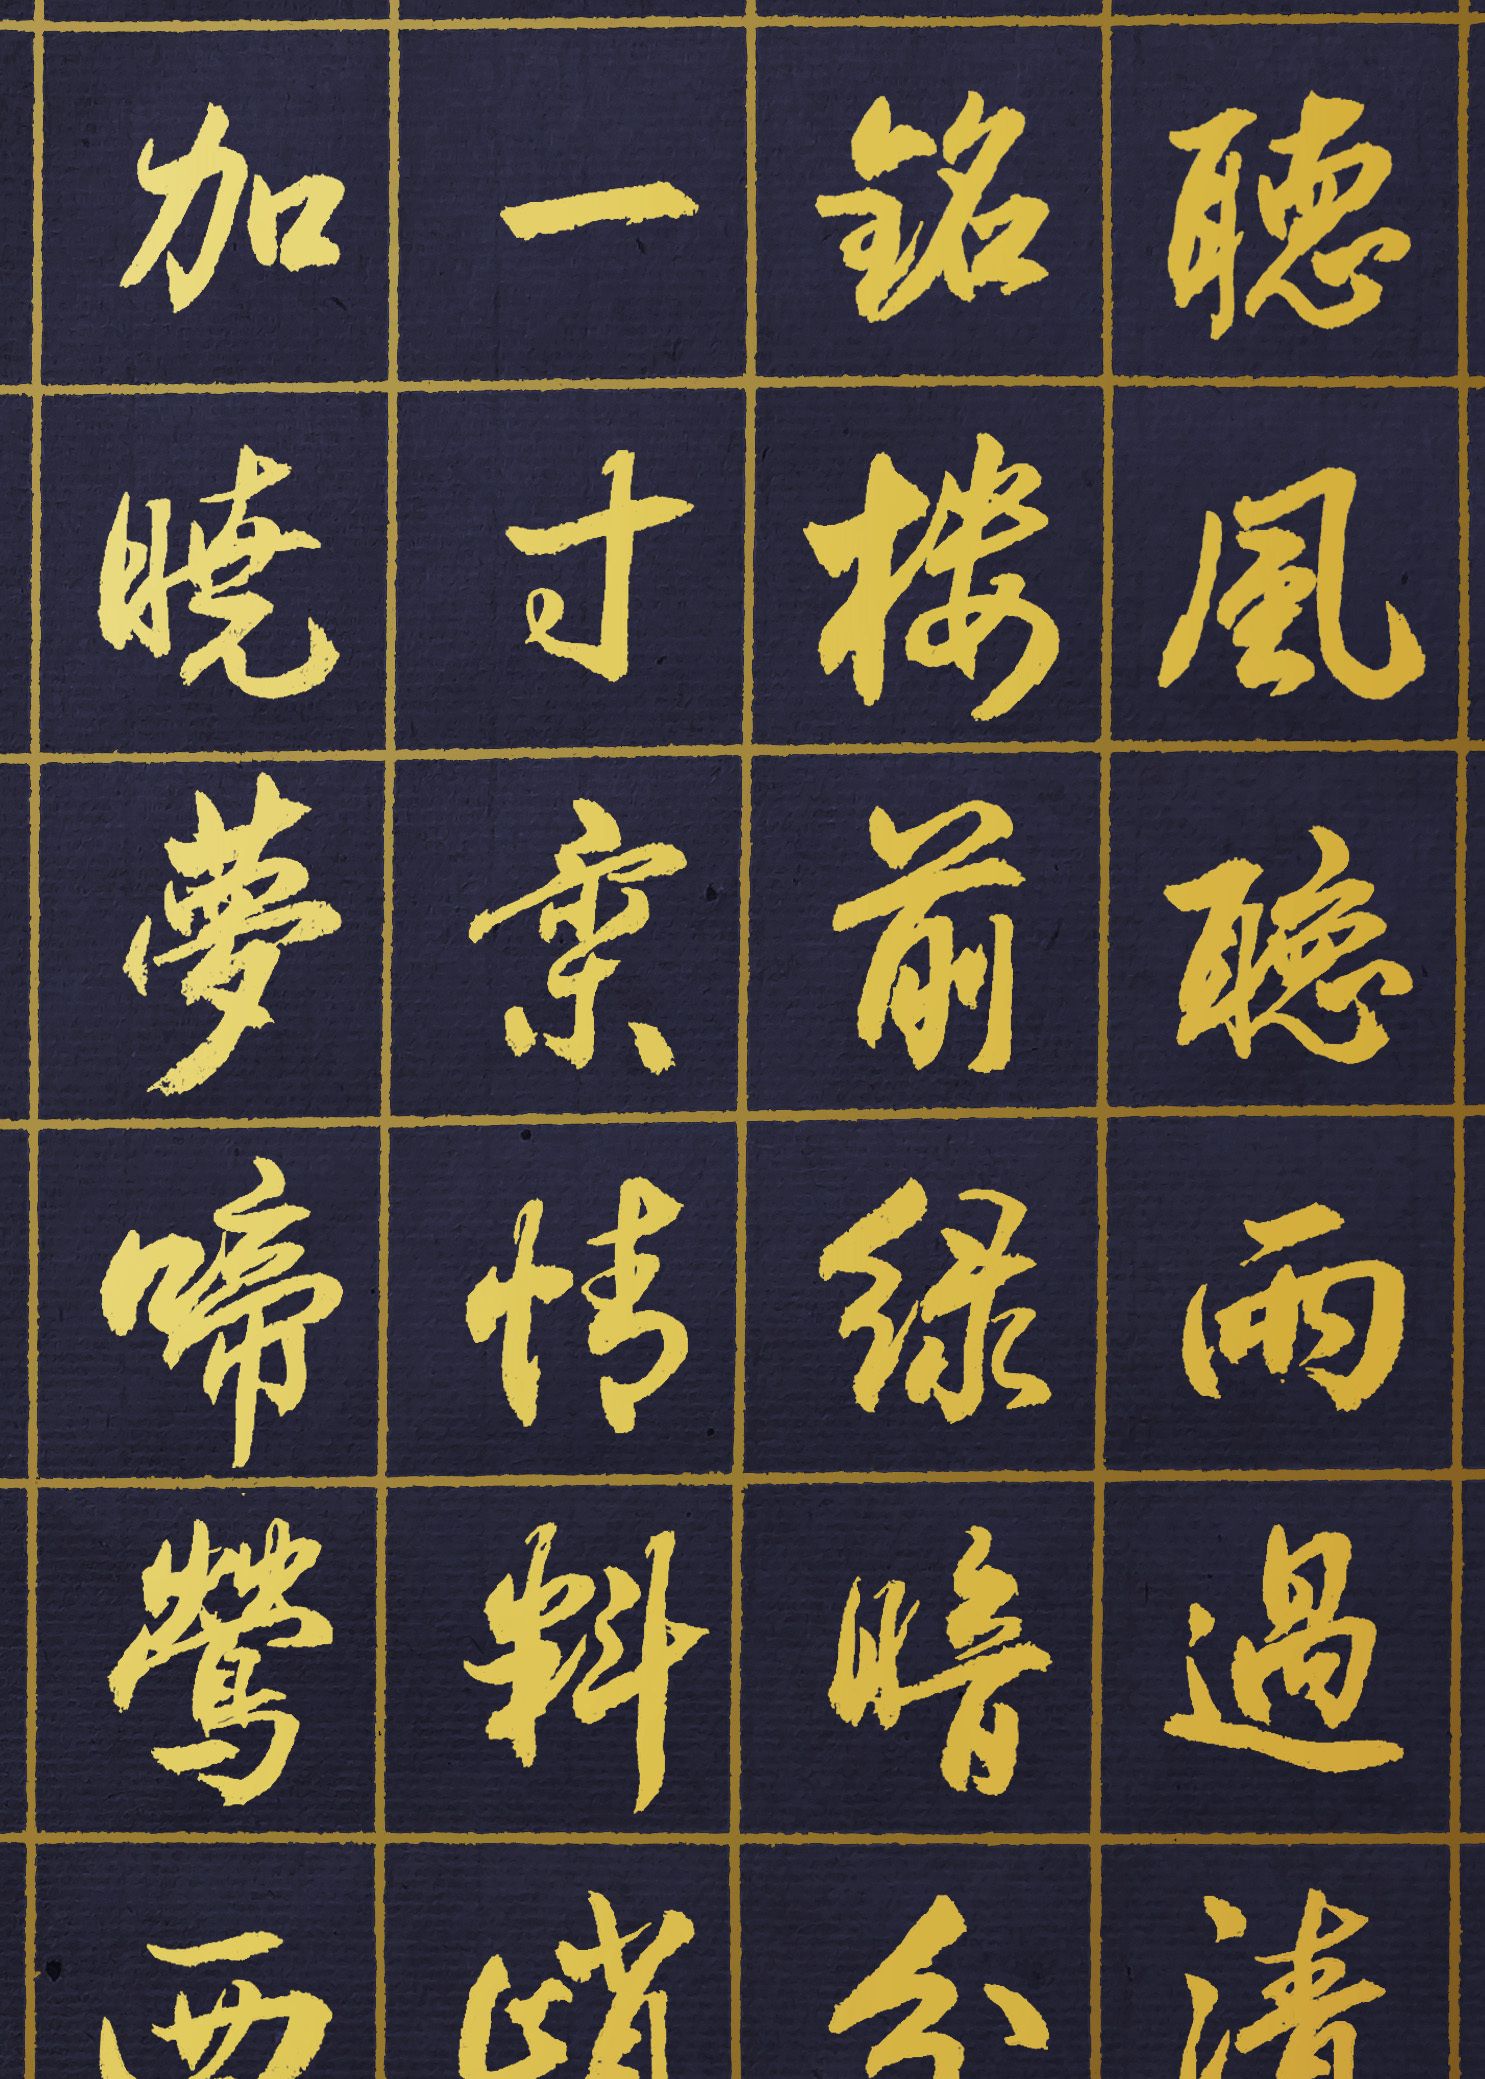 聽風聽雨過清
銘樓前綠暗分
一寸柔情料峭
加曉夢啼鶯西